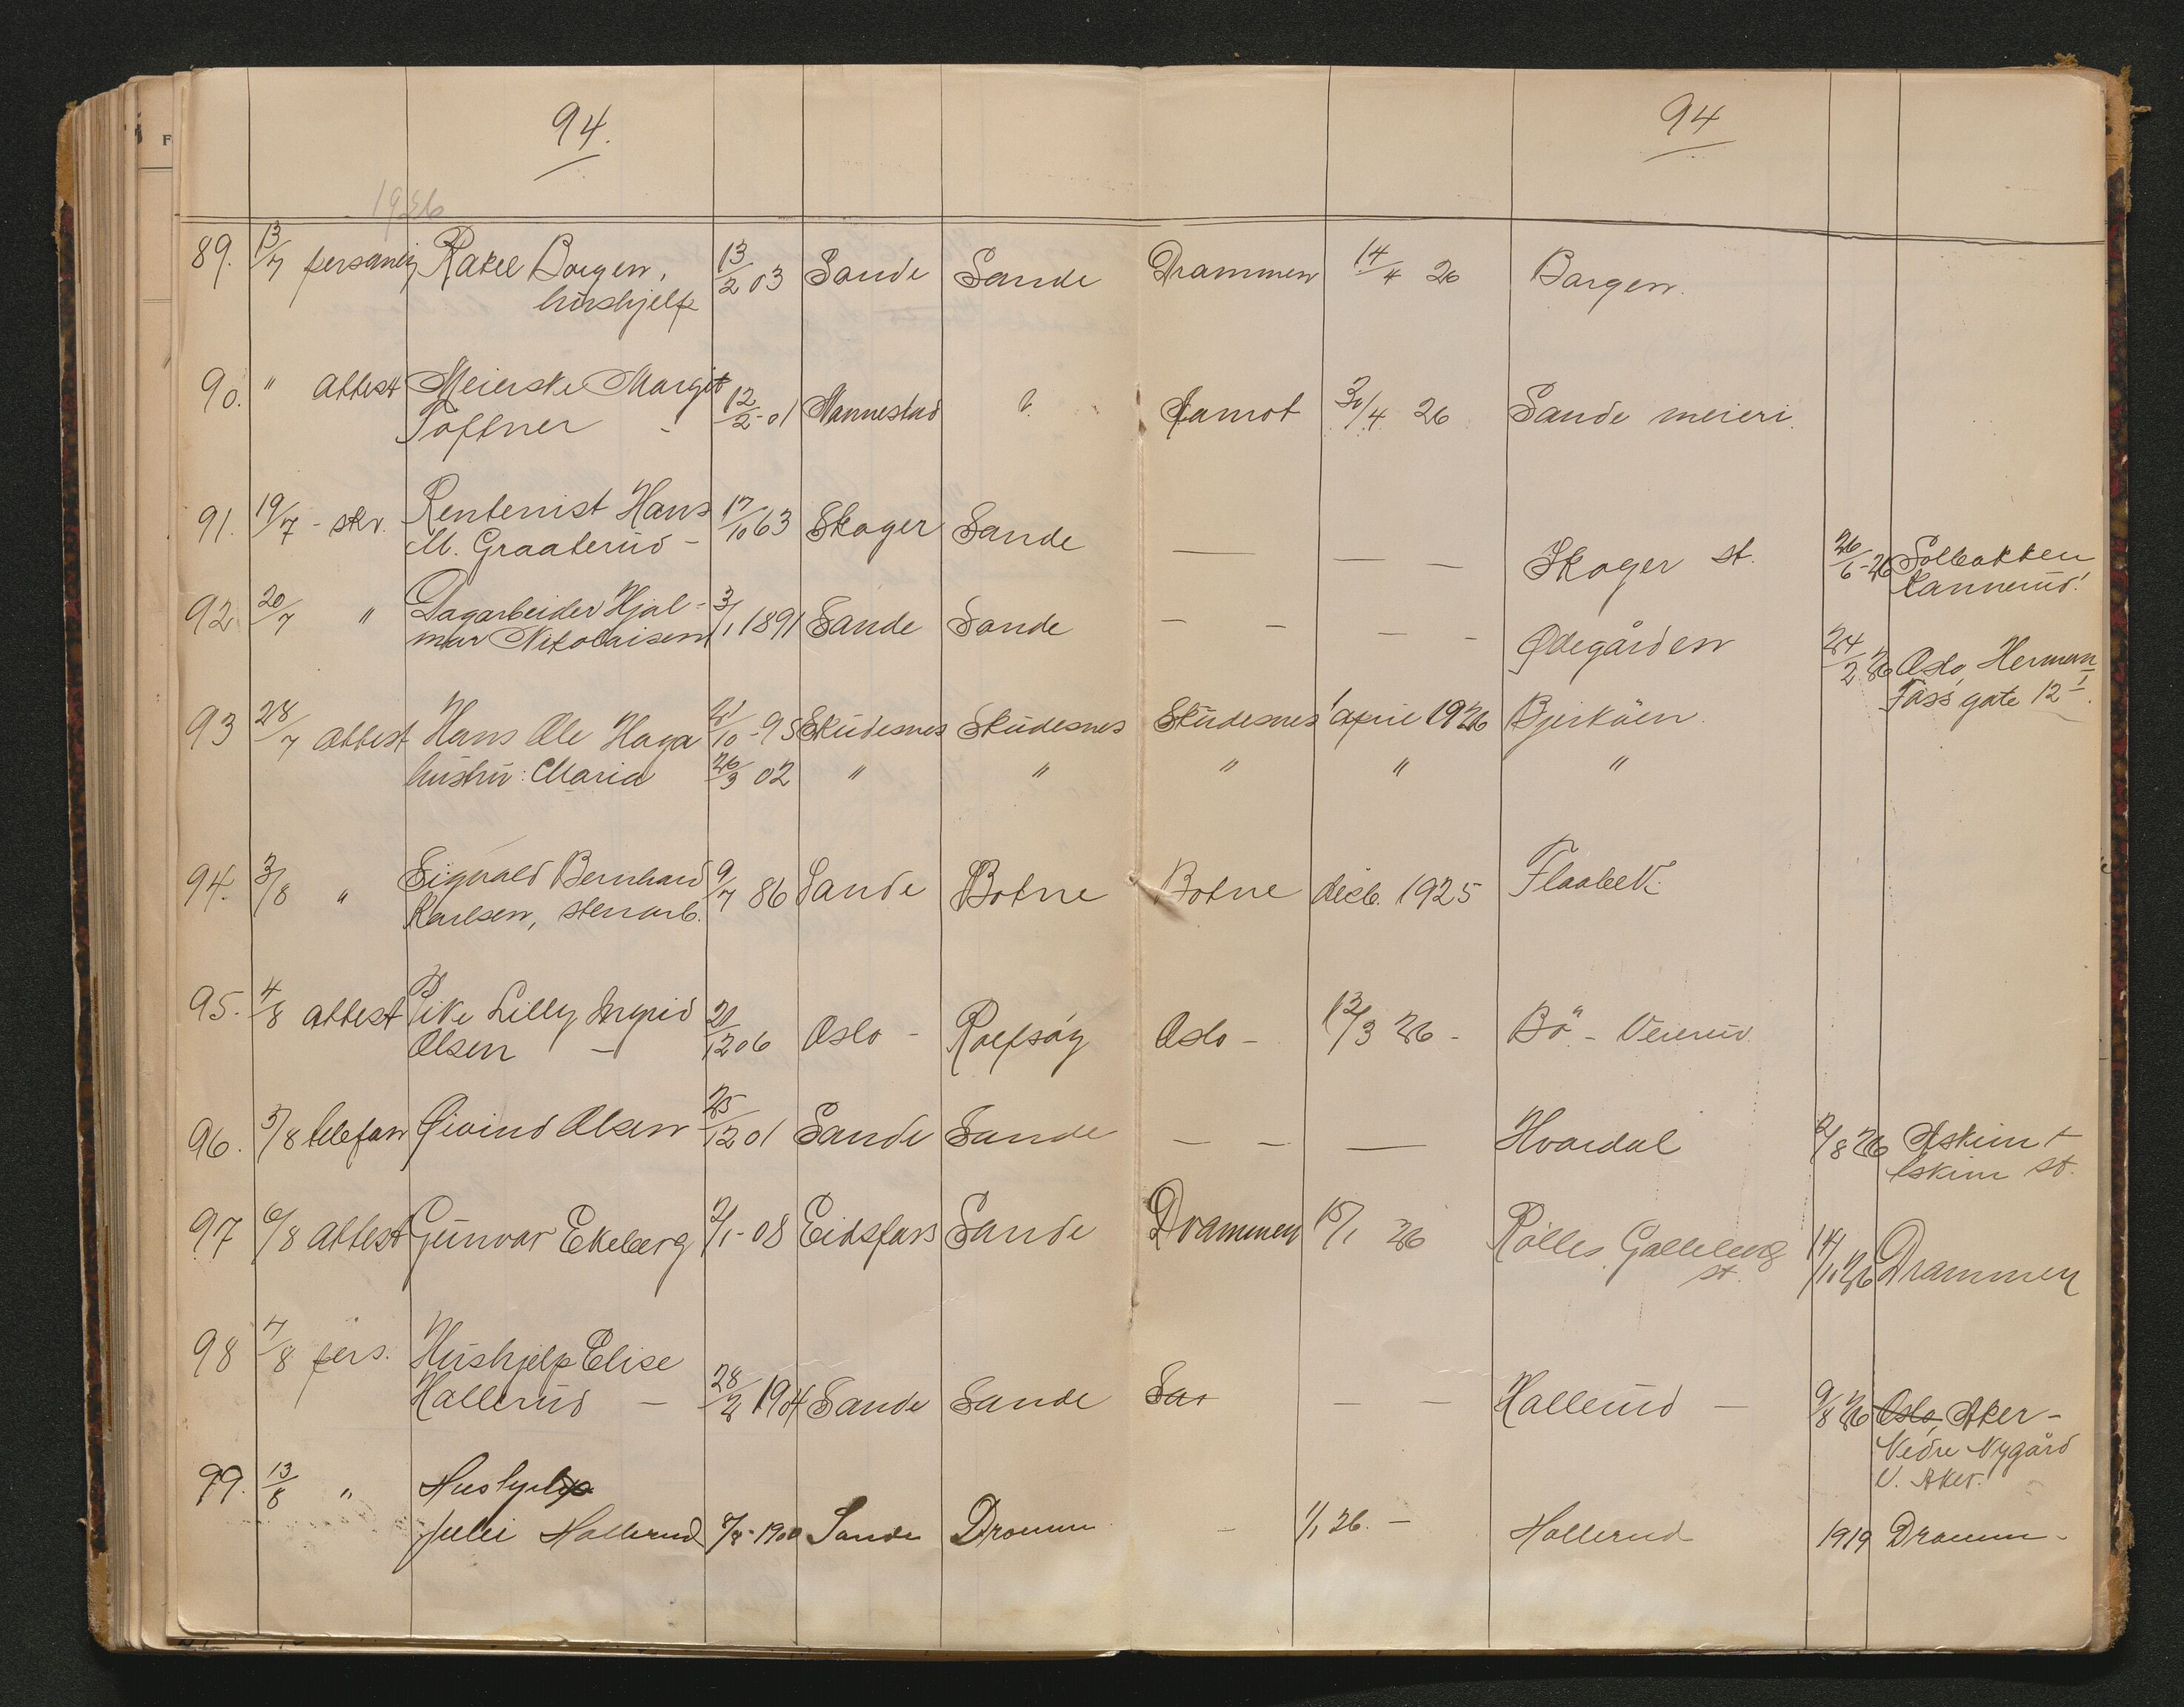 94.
94
1926
89. 13/7 personlig Rakel Borgen, 13/2 03 Sande Sande Drammen 14/4 26 Borgen.
hushjelp
90. " attest Meierske Margit 12/2-01 ? 30/4 26 Sande meieri.
Toftner -
91. 19/7 - skr. Rentenist Hans 17/10 63 Skoger Sande — — — Skoger st. 26/6-26 Solbakken
M. Graaterud - Rannerud!
92 20/7 " Dagarbeider Hjal- 3/1 1891 Sande Sande — — — - Ødegården 24/2 26 Oslo, Herman
mar Nikolaisen Foss' gate 12 I.
93 28/7 attest Hans Ole Haga /10-95 Skudesnes Skudesnes Skudesnes 1 april 1926 Bjerköen
hustru: Maria 26/3 02 " " " " "
94. 3/8 " Sigvald Bernhard 9/7 86 Sande Botne Botne desb. 1925 Flaabekk
Karlsen, stenarb.
95. 4/8 attest Pike Lilly Ingrid 20/12 06 Oslo - Rolfsøy Oslo - 12/3 26 - Bö - Veierud
Olsen —
96. 5/8 telefon Øivind Olsen 25/12 01 Sande Sande — — — Hvardal 2/8 26 Askim
Askim st.
97 6/8 attest Gunvor Ekeberg 2/1-08 Eidsfos Sande Drammen 15/1 26 Rölles, Galleberg 14/10 26 Drammen
st.
98 7/8 pers. Hushjelp Elise
Hallerud — 28/2 1904 Sande Sande San — — Hallerud — 9/8 26 Oslo, Aker -
Nedre Nygård
V. Aker.
99. 13/8 " Hushjelp
Julie Hallerud 7/8-1900 Sande Dramm - 1/1 26. - Hallerud 1919 Dramm-